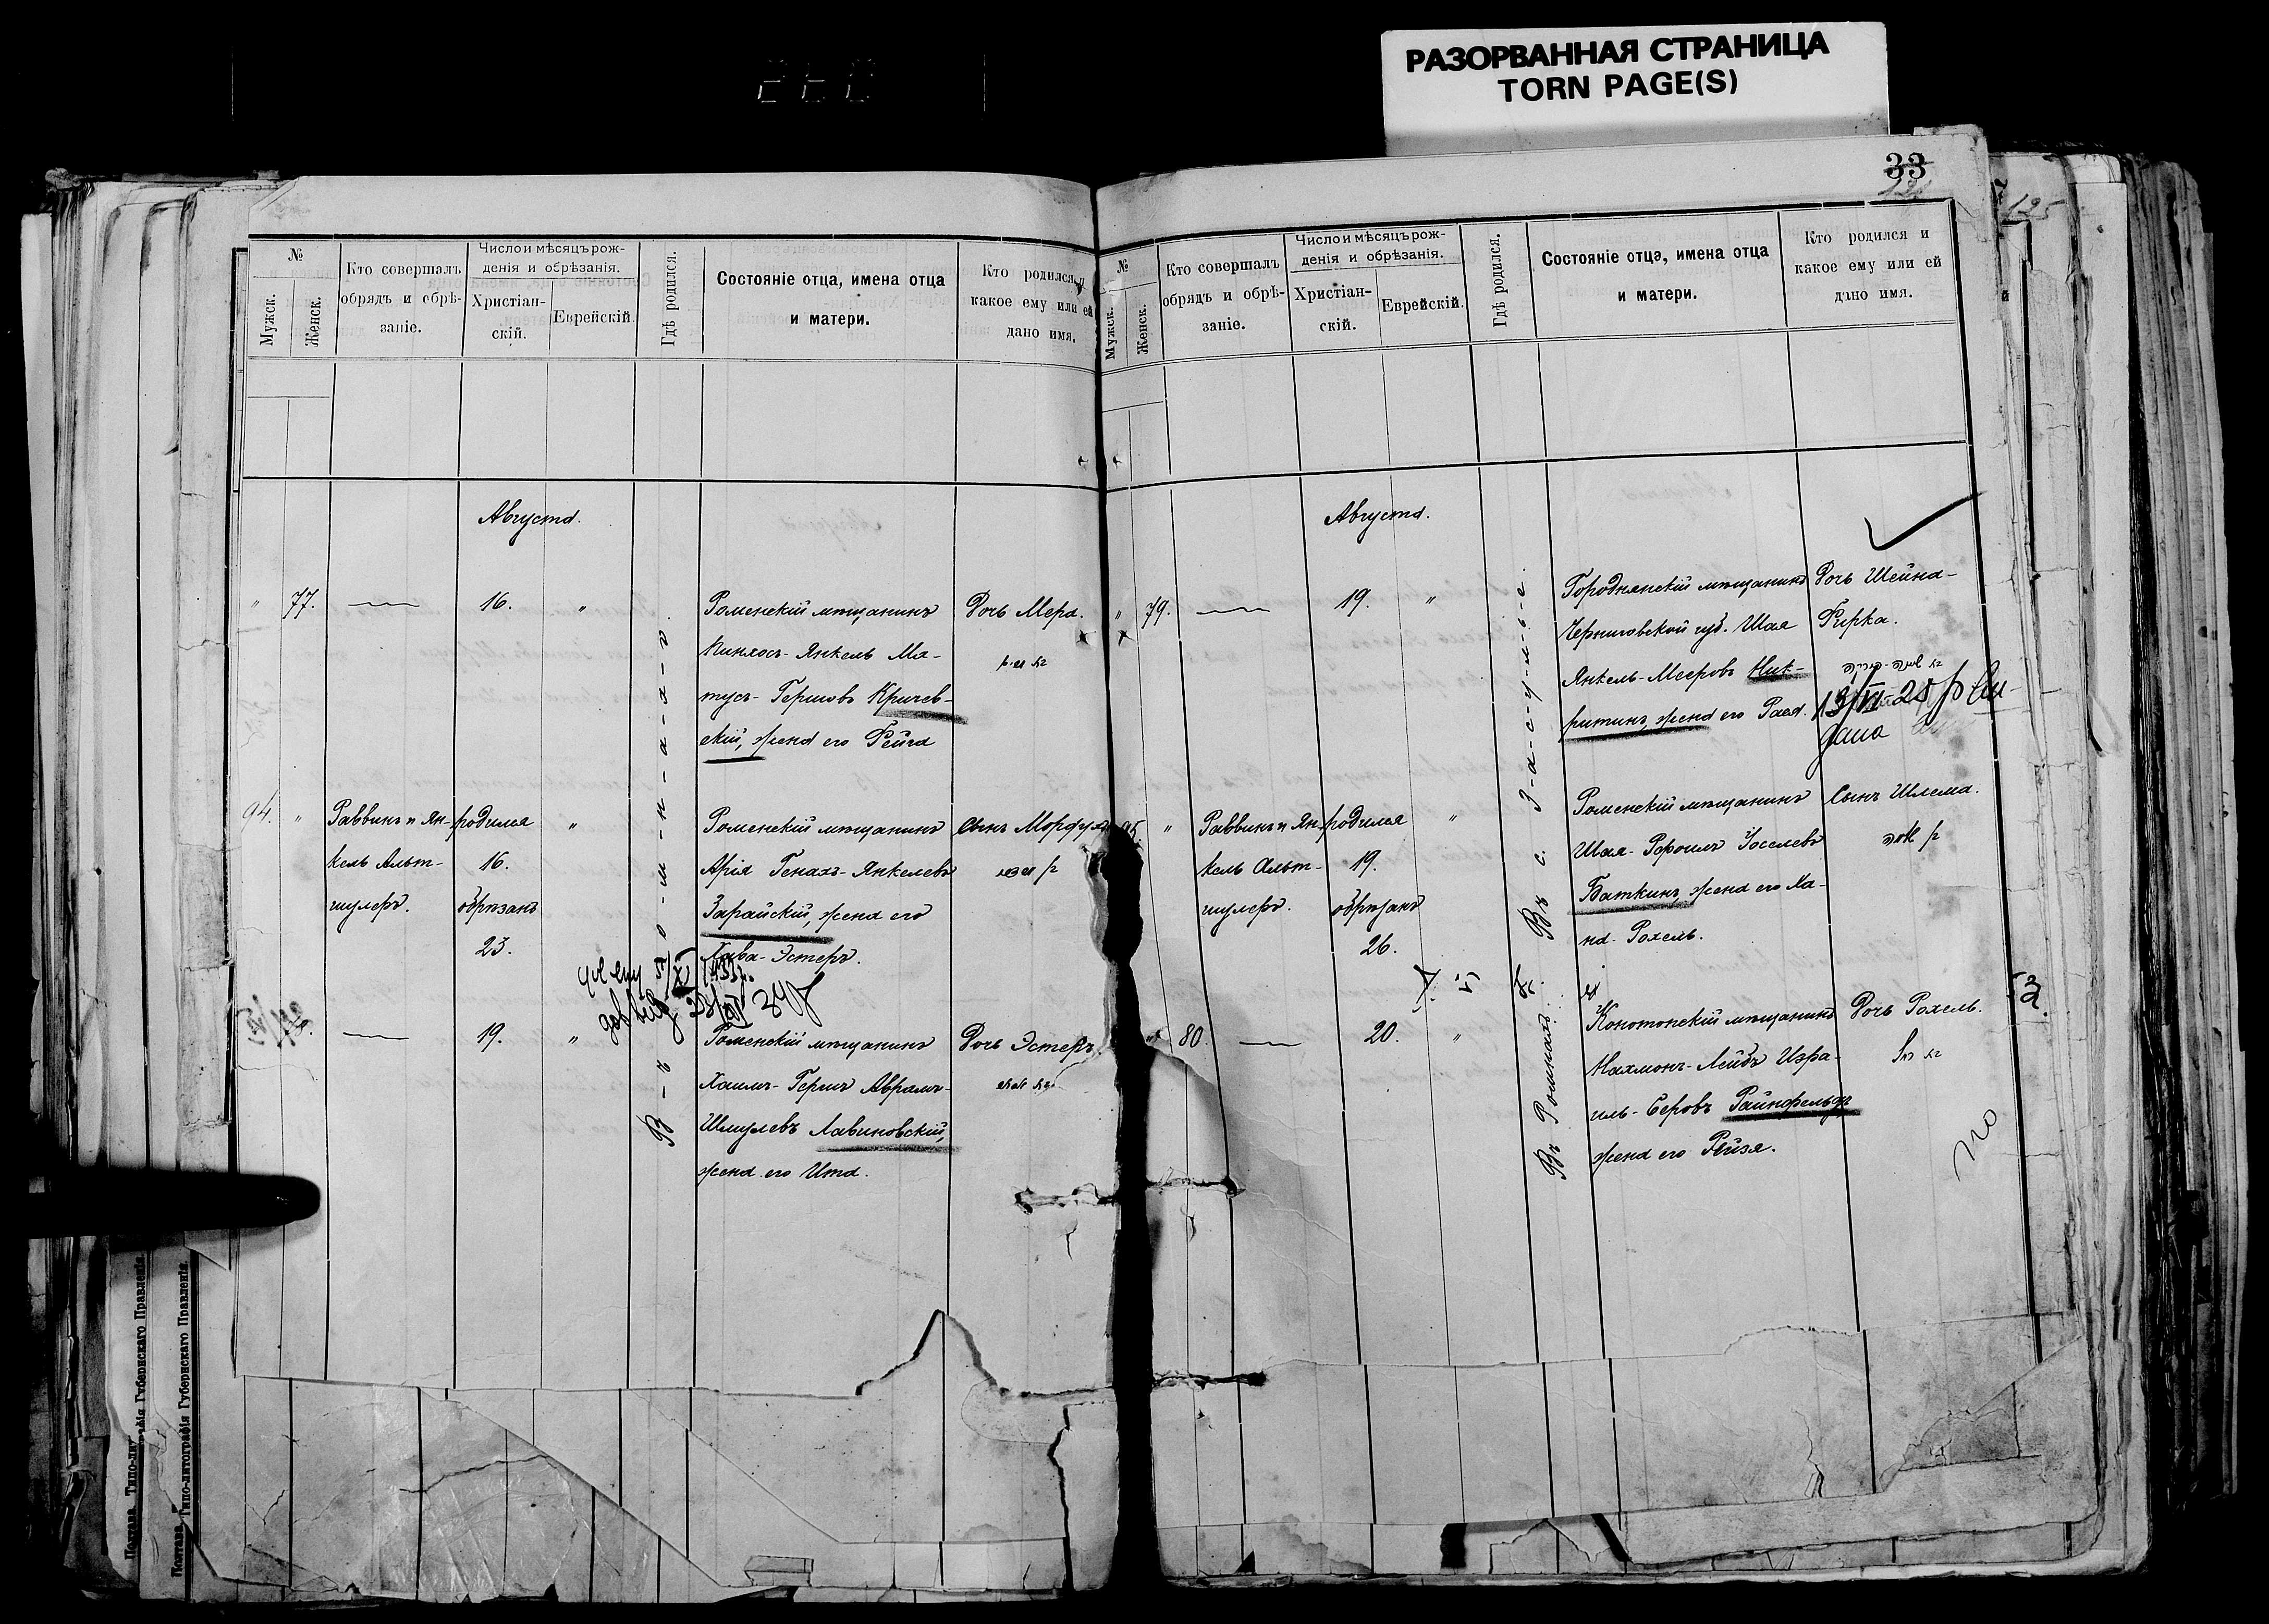 РАЗОРВАННАЯ СТРАНИЦА
TORN PAGE(S)
33
125
№
Мужск.
Женск.
Кто совершалъ
обрядъ и обрѣ-
заніе.
Число и мѣсяцъ рож-
денія и обрѣзанія.
Христіан-
скій.
Еврейскій.
Гдѣ родился.
Состояніе отца, имена отца
и матери.
Кто родился и
какое ему или ей
дано имя.
Августа.
" 77. 16. "
Роменскій мѣщанинъ
Пинхосъ-Янкель Ма-
тусъ-Гершовъ Кричев-
скій, жена его Фейга
Дочь Мера.
94. "
Раввинъ и Ян-
кель Альт-
шулеръ.
родился
16.
обрѣзанъ
23.
"
Роменскій мѣщанинъ
Арія Генахъ-Янкелевъ
Зарайскій, жена его
Хава-Эстеръ.
Сынъ Мордух
19. "
Роменскій мѣщанинъ
Хаимъ-Гершъ Абрамъ-
Шмулевъ Лавиновскій,
жена его Ита.
Дочь Эстеръ
В-ъ
№
Мужск.
Женск.
Кто совершалъ
обрядъ и обрѣ-
заніе.
Число и мѣсяцъ рож-
денія и обрѣзанія.
Христіан-
скій.
Еврейскій.
Гдѣ родился.
Состояніе отца, имена отца
и матери.
Кто родился и
какое ему или ей
дано имя.
Августа.
" 79. 19. "
Городнянскій мѣщанинъ
Черниговской губ. Шая
Янкель-Мееровъ Ник-
ритинъ, жена его Рася.
Дочь Шейна-
Фирка.
95. "
Раввинъ и Ян-
кель Альт-
шулеръ.
родился
19.
обрѣзанъ
26.
"
Въ с. З-а-с-у-л-ь-е.
Роменскій мѣщанинъ
Шая-Рефоилъ Іоселевъ
Баткинъ, жена его Ха-
на-Рохель.
Сынъ Шлема.
80. 20. "
Въ Ромнахъ.
Конотопскій мѣщанинъ
Нахмонъ-Лейбъ Изра-
иль-Беровъ Райнфельдъ
жена его Рейзя.
Дочь Рохель.
Полтава. Типо-литографія Губернскаго Правленія.